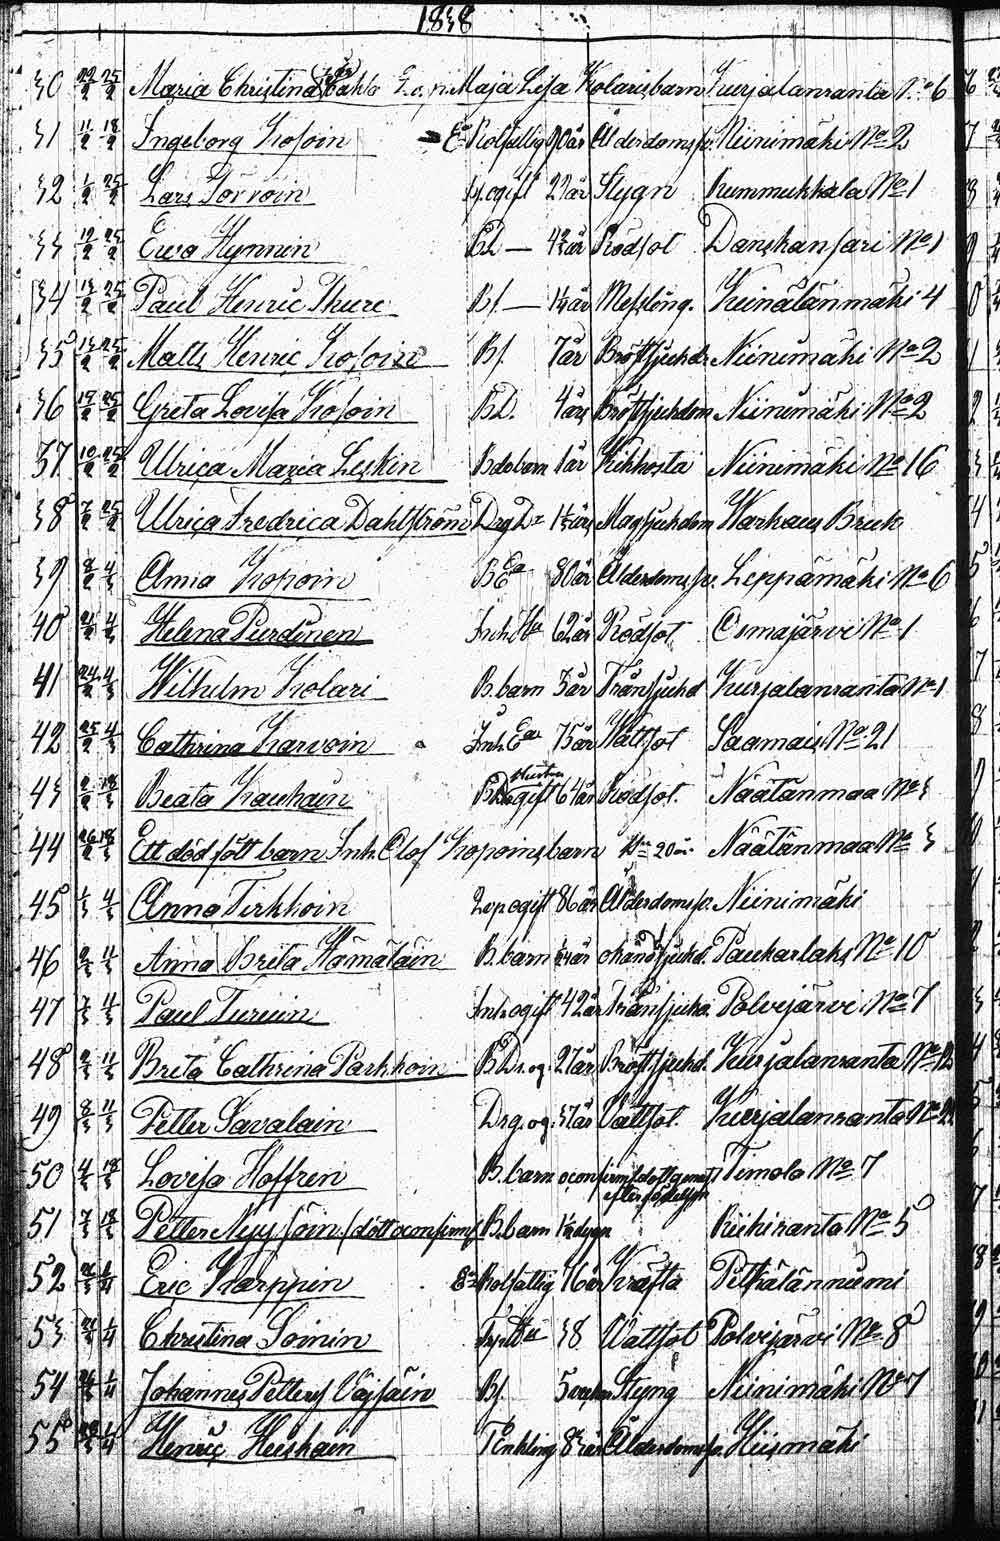 1838
30 22/2 25/2 Maria Christina Lo, n Maja Lisa Kolaris barn Kurjalanranta No 6
31 11/2 18/2 Ingeborg Kosoin Ea Rotfattig 90 år Ålderdomsbr. Niinimäki No 2
32 1/2 25/2 Lars Torvoin ogift 22 år Stygn Kummukkala No 1
33 12/2 25/2 Ewa Hynnin BD — 4½ år Rödsot Danskansari No 1
34 13/2 25/2 Paul Henric Thure Bs. — 1¼ år Messling. Keinälänmäki 4
35 13/2 25/2 Matts Henric Kosoin Bs. 7 år Bröstsjukd. Niinimäki No 2
36 15/2 25/2 Greta Lovisa Kosoin BD. 4 år Bröstsjukdom Niinimäki No 2
37 10/2 25/2 Ulrica Maria Leskin Bds barn 1 år Kikhosta Niinimäki No 16
38 7/2 25/2 Ulrica Fredrica Dahlström Drg Dr 1½ år Magsjukdom Warkaus Bruk
39 8/2 4/3 Anna Kosoin BEa 80 år Ålderdomsbr. Leppämäki No 6
40 21/2 4/3 Helena Purdinen Inh. Hu 62 år Rödsot Osmajärvi No 1
41 24/2 4/3 Wilhelm Kolari B. barn 3 år Transjukd Kurjalanranta No 1
42 25/2 4/3 Cathrina Karvoin Inh. Ea 75 år Wattsot Saamais No 21
43 2/3 18/3 Beata Kauhain hustru gift 64 år Rödsot. Näätänmaa No 3
44 26/2 18/3 Ett dödfött barn Inh. Olof Kopoins barn 20 år Näätänmaa No 3
45 1/3 4/3 Anna Tirkkoin Lop ogift 86 år Ålderdomsbr. Niinimäki
46 2/3 11/3 Anna Brita Hämäläin B. barn ¼ år okänd sjukd. Paukarlaks No 10
47 7/3 11/3 Paul Turuin Inh. ogift 42 år Transjukd. Polvijärvi No 7
48 9/3 11/3 Brita Cathrina Parkkoin BDr. og. 27 år Bröstsjukd. Kurjalanranta No 12
49 8/3 11/3 Petter Savalain Drg. og. 37 år Vattsot. Kurjalanranta No 22
50 4/3 18/3 Lovisa Hoffren B. barn oconfirm. dött genast efter födelsen Timola No 7
51 7/3 18/3 Petter (dött oconfirm) B. barn 1½ dygn Riikiranta No 5
52 21/3 1/4 Eric Karppin Ea Rotfattig 76 år Kräfta Pitkälännumi
53 21/3 1/4 Christina Soinin Hu 38 Wattsot Polvijärvi No 8
54 24/3 1/4 Johannes Petters Väisäin Bs. 5 veckor Styng Niinimäki No 7
55 29/3 1/4 Henric Heiskain T Enkling 83 år Ålderdomsbr. Hiismäki